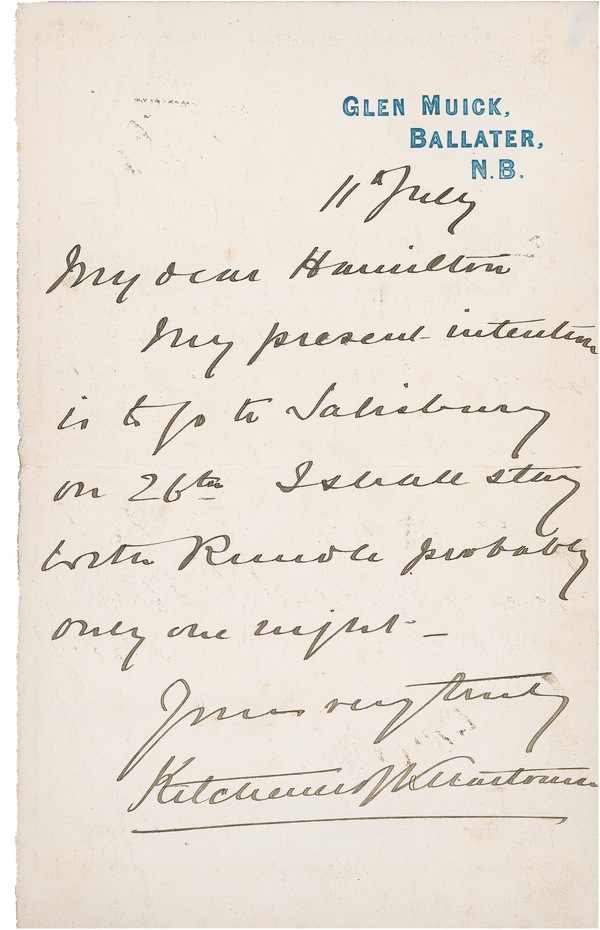 GLEN MUICK,
BALLATER,
N.B.
11th July
My dear Hamilton
My present intention
is to go to Salisbury
on 26th I shall stay
with Rundle probably
only one night —
Yours very truly
Kitchener of Khartoum